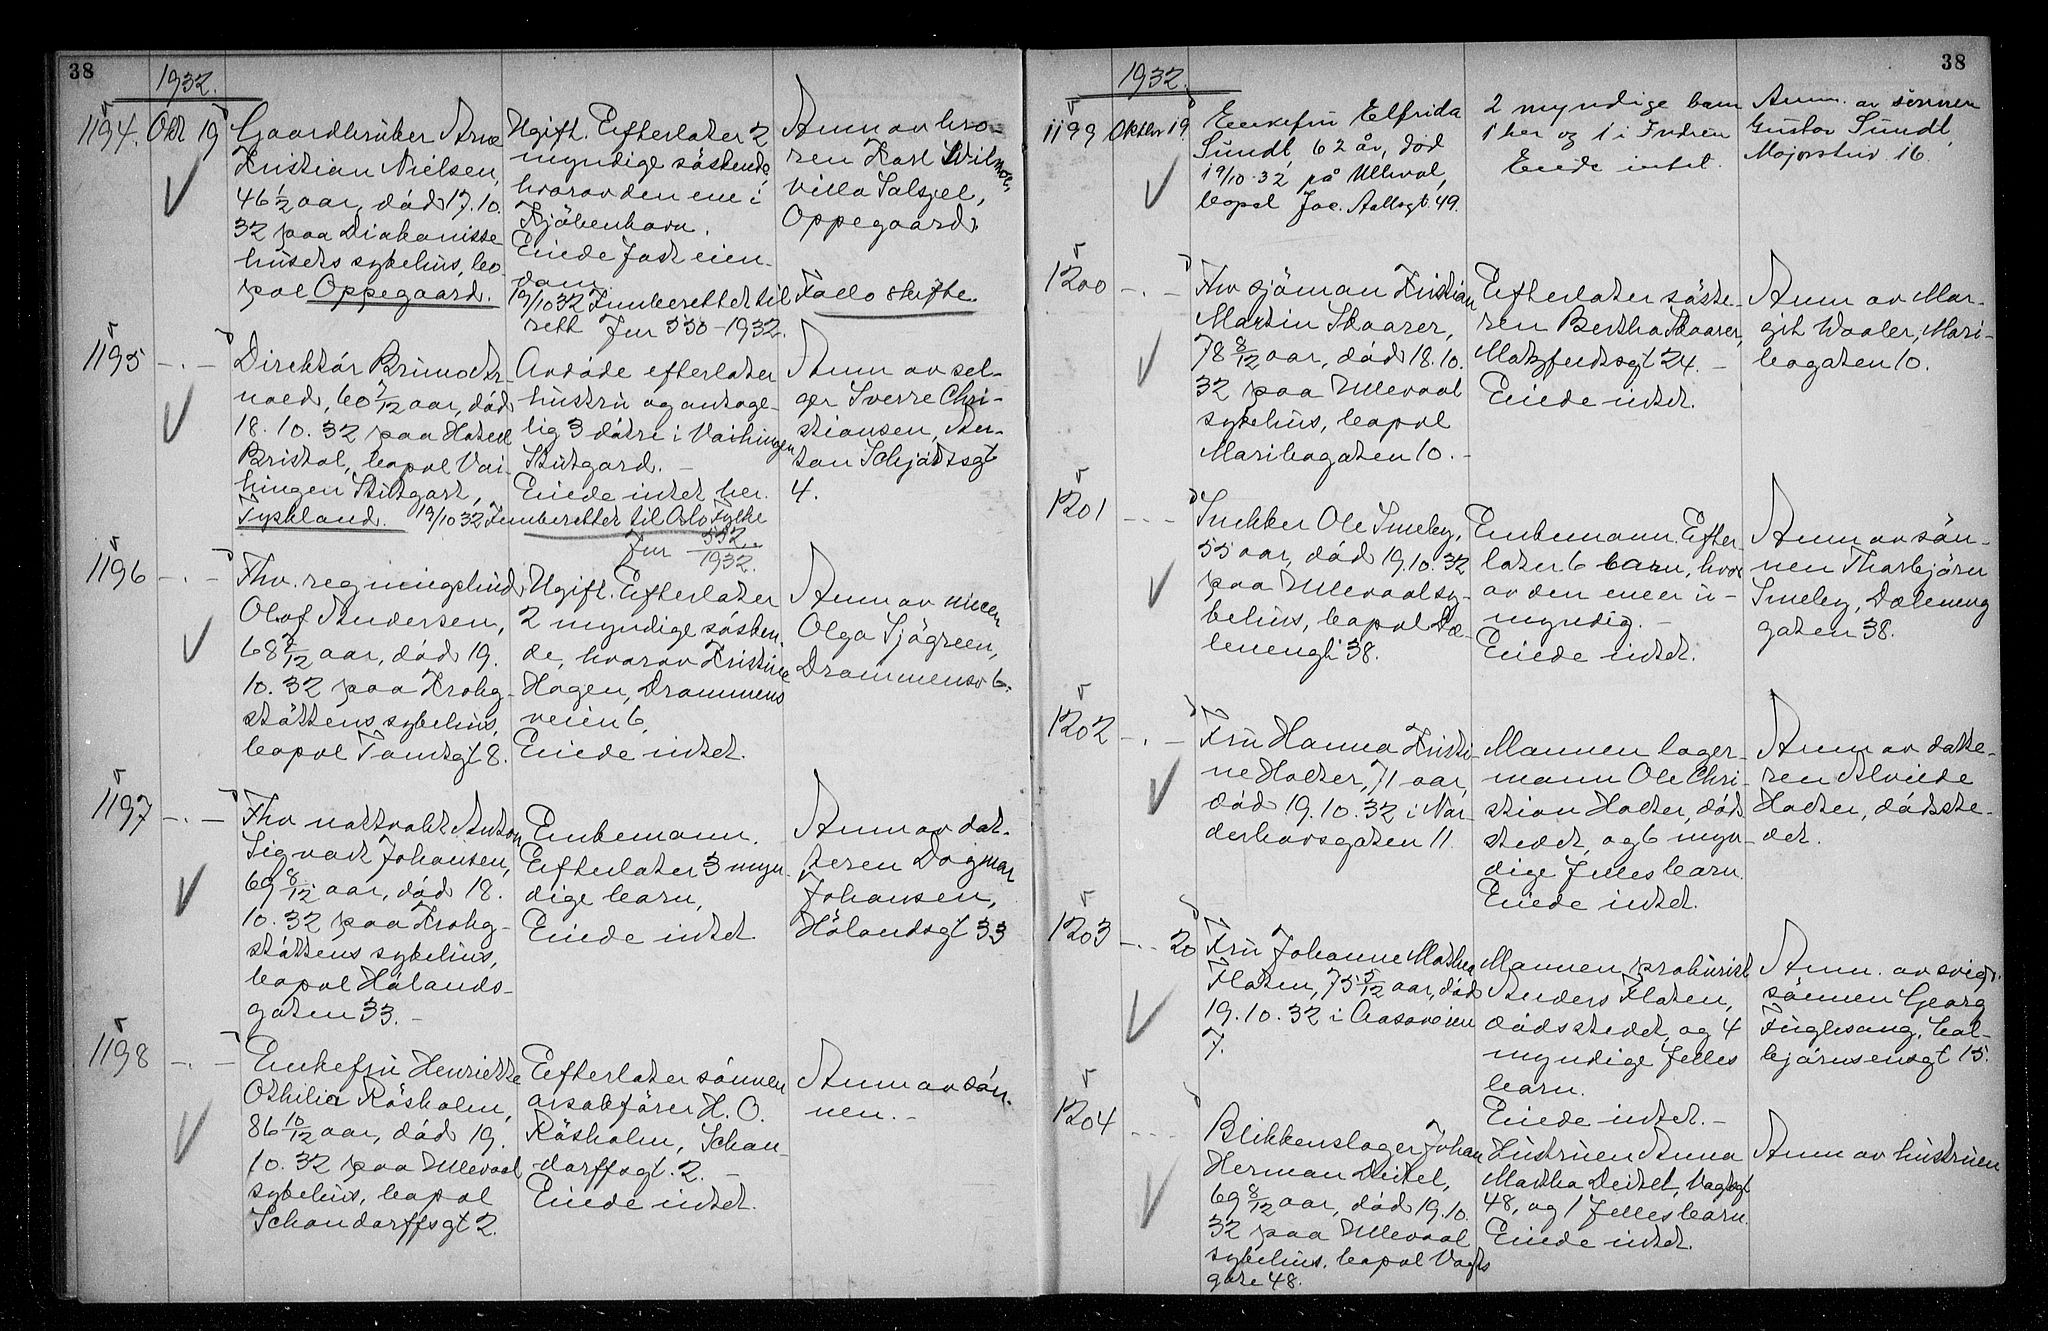 38
1932.
1194. Okt 19
Gaardbruker Arne
Kristian Nielsen,
46 1/2 aar, død 17.10.
32 paa Diakonisse
husets sykehus, bo-
pæl Oppegaard.
Ugift. Efterlater 2
myndige søskende
hvorav den ene i
Kjøbenhavn.
Eiede fast eien-
dom.
19/10 32 Innberettet til
rett Jnr 550-1932.
Anm av bro-
ren Karl
villa Solspel,
Oppegaard.
Follo skifte.
1195 -.-
Direktør Bruno Ar-
nold, 60 /12 aar, død
18.10.32 paa Hotel
Bristol, bopæl Vai-
hingen Stutgart,
Tyskland.
Avdøde efterlater
hustru og antage-
lig 3 døtre i Vaihingen
Stutgard. -
Eiede intet her.
19/10 32 Innberettet til Oslo Fylke
Jnr 552/1932.
Anm av sel-
ger Sverre Chri-
stiansen, An-
ton Schjøtsgt
4.
1196 -.-
Fhv. regningsbud
Olaf Andersen,
68 /12 aar, død 19.
10.32 paa Krohg-
støttens sykehus,
bopæl Tomtegt 8.
Ugift. Efterlater
2 myndige sösken
de, hvorav Kristine
Hagen, Drammens
veien 6,
Eiede intet.
Anm av niecen
Olga Sjøgreen,
Drammensv 6.
1197 -.-
Fhv nattvakt Anton
Sigvart Johansen,
69 8/12 aar, død 18.
10.32 paa Krohg-
støttens sykehus,
bopæl Hølands-
gaten 33. -
Enkemann.
Efterlater 3 myn-
dige barn,
Eiede intet
Anm av dat-
teren Dagmar
Johansen,
Hølandsgt 33
1198 -.-
Enkefru Henriette
Othilie Røsholm,
86 10/12 aar, død 19.
10.32 paa Ullevaal
sykehus, bopæl
Schandorffsgt 2.
Efterlater sønnen
orsakfører H. O.
Røsholm, Schan-
dorffsgt. 2. -
Eiede intet.
Anm av søn-
nen. -
38
1932.
1199 Oktbr 19.
Enkefru Elfrida
Sundt, 62 år, død
19/10-32 på Ullevål,
bopel Jac. Aallsgt. 49.
2 myndige barn
1 her og 1 i Indien
Eiede intet.
Anm. av sönnen
Gustav Sundt,
Majorstuv. 16.
1200 -.-
Fhv sjøman Kristian
Martin Skaarer,
78 8/12 aar, død 18.10.
32 paa Ullevaal
sykehus, bopæl
Maribogaten 10. -
Efterlater søste-
ren Bertha Skaarer,
Motzfeldtsgt 24. -
Eiede intet.
Anm av Mar-
git Waaler, Mari-
bogaten 10.
1201 -.-
Snekker Ole Smeby,
55 aar, død 19.10.32
paa Ullevaal sy-
kehus, bopæl Dæ-
lenengt 38.
Enkemann. Efter-
later 6 barn, hvor
av den ene er u-
myndig. -
Eiede intet.
Anm av søn-
nen Thorbjørn
Smeby, Dæleneng
gaten 38.
1202 -.-
Fru Hanna Kristi-
ne Holter, 71 aar,
død 19.10.32 i Nor-
derhovsgaten 11.
Mannen lager-
mann Ole Chri-
stian Holter, død-
stedet, og 6 myn-
dige fellesbarn.
Eiede intet.
Anm av datte-
ren Alvilde
Holter, dødste-
det.
1203 -.- 20
Fru Johanne Mathea
Flaten, 75 5/12 aar, død
19.10.32 i Aasaveien
7.
Mannen, prokurist
Anders Flaten,
dødsstedet, og 4
myndige felles
barn.
Eiede intet. -
Anm. av svige-
sønnen Georg
Fuglesang, Col-
bjørnsensgt 15.
1204 -.-
Blikkenslager Johan
Herman Deitel,
69 8/12 aar, død 19.10.
32 paa Ullevaal
sykehus. bopæl Vogts
gate 48.
Hustruen Anna
Martha Deitel, Vogtsgt
48, og 1 fellesbarn.
Eiede intet.
Anm av hustruen